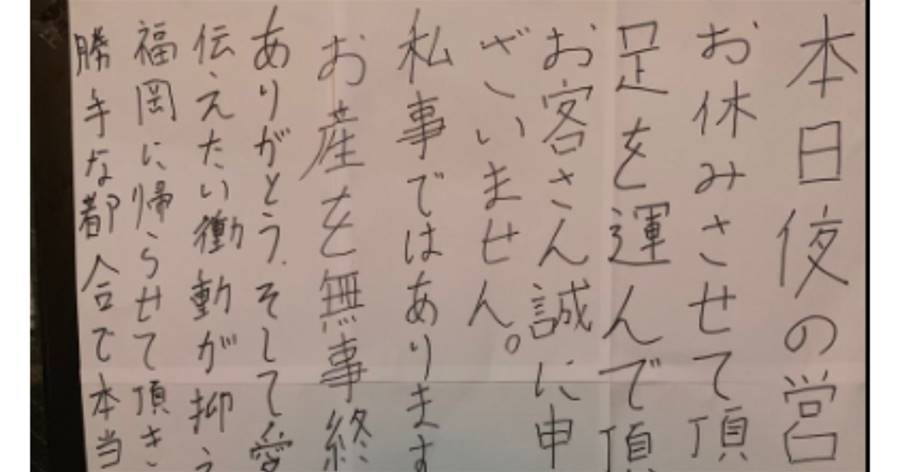 本日夜の営
お休みさせて頂
足を運んで頂
お客さん誠に申
ざいません。
私事ではあります
お産を無事終
ありがとう.そして愛
伝えたい衝動が抑え
福岡に帰らせて頂き
勝手な都合で本当